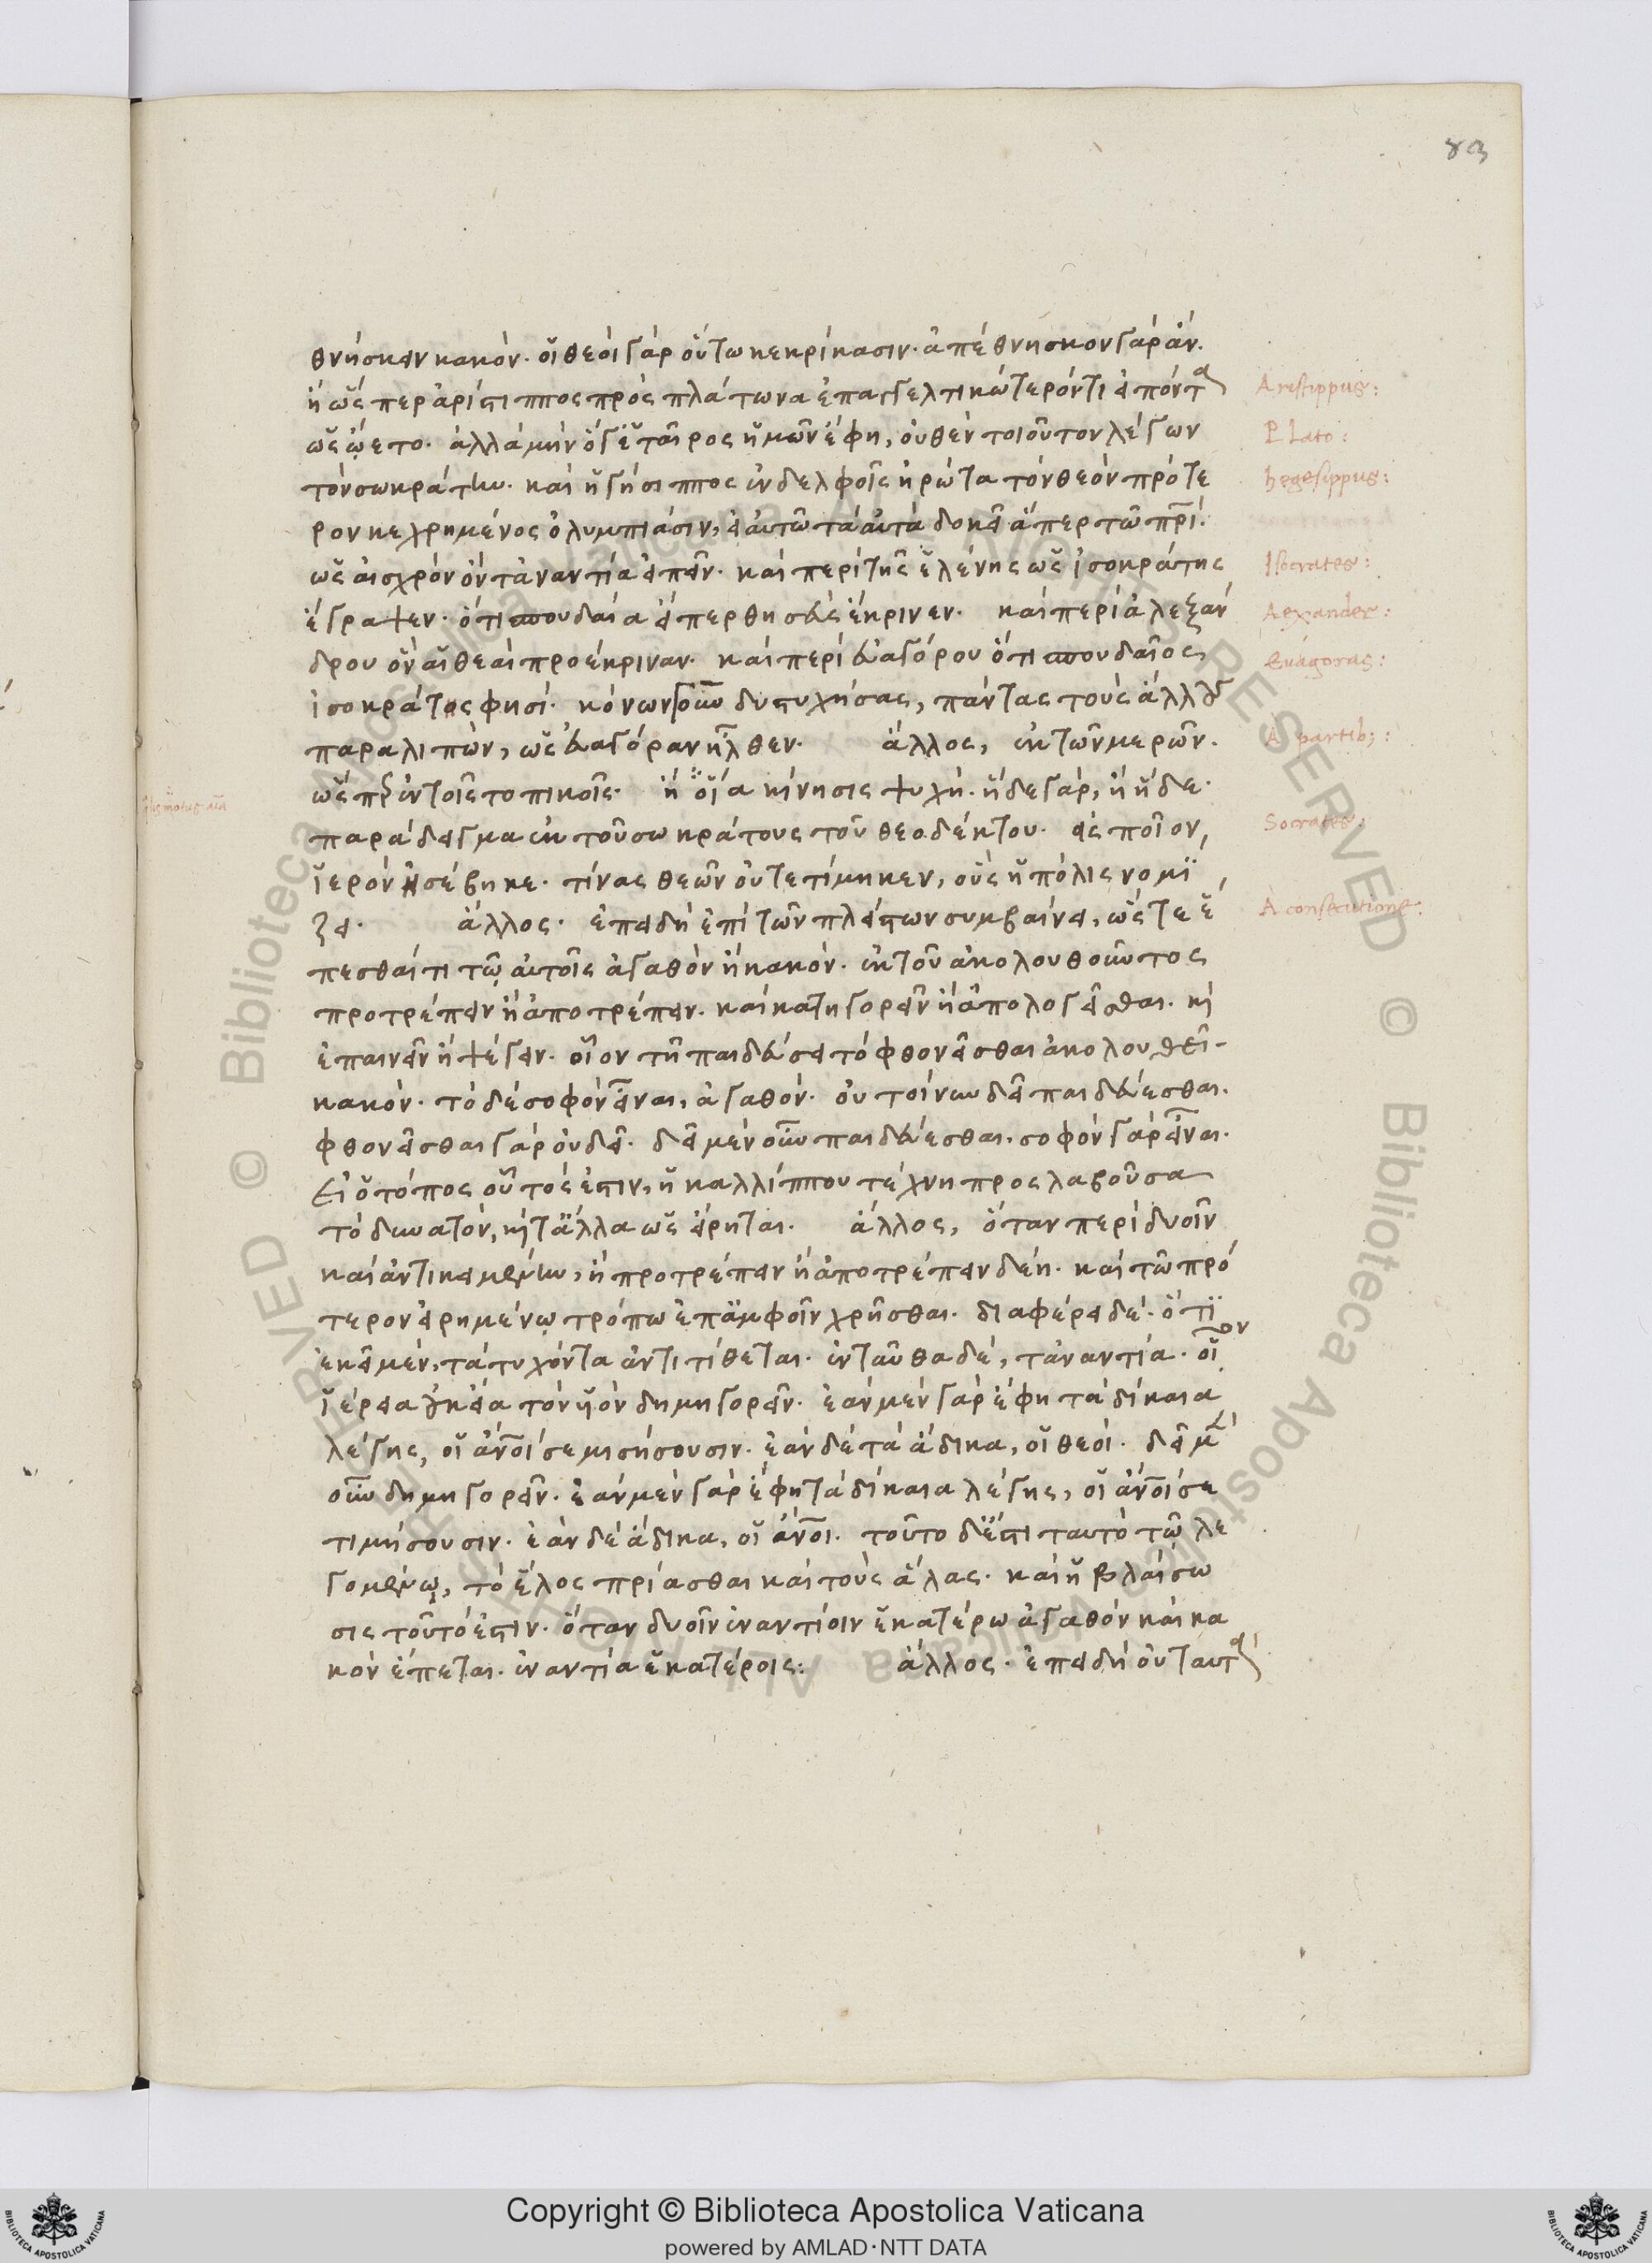 83
θνήσκειν κακόν. οἱ θεοὶ γὰρ οὕτω κεκρίκασιν. ἀπέθνησκον γὰρ ἄν.
ἢ ὥσπερ ἀρίστιππος πρὸς πλάτωνα ἐπαγγελτικώτερόν τι εἰπόντα
Arestippus:
ὡς ᾤετο. ἀλλὰ μὴν ὅ γ' ἑταῖρος ἡμῶν ἔφη, οὐθὲν τοιοῦτον λέγων
Plato:
τὸν σωκράτην. καὶ ἡγήσιππος ἐν δελφοῖς ἠρώτα τὸν θεὸν πρότε
hegesippus:
ρον κεχρημένος ὀλυμπιάσιν, εἰ αὐτῶ τὰ αὐτὰ δοκεῖ ἅπερ τῶ πρί.
ὡς αἰσχρὸν ὂν τἀναντία εἰπεῖν. καὶ περὶ τῆς ἑλένης ὡς ἰσοκράτης
Isocrates:
ἔγραψεν. ὅτι σπουδαία εἴπερ θησεὺς ἔκρινεν. καὶ περὶ ἀλεξάν
Aexander:
δρου ὃν αἱ θεαὶ προέκριναν. καὶ περὶ εὐαγόρου ὅτι σπουδαῖος,
Euagoras:
ἰσοκράτης φησί. κόνων γοῦν δυστυχήσας, πάντας τοὺς ἄλλους
παραλιπὼν, ὡς εὐαγόραν ἦλθεν. ἄλλος, ἐκ τῶν μερῶν.
A partib;:
ὥσπερ ἐν τοῖς τοπικοῖς. ἢ ὅΐα κίνησις ψυχή. ἥδε γὰρ, ἢ ἥδε.
παράδειγμα ἐκ τοῦ σωκράτους τοῦ θεοδέκτου. εἰς ποῖον
Socrates:
ἱερὸν ἠσέβηκε. τίνας θεῶν οὐ τετίμηκεν, οὓς ἡ πόλις νομί
ζει. ἄλλος. ἐπειδὴ ἐπὶ τῶν πλείστων συμβαίνει, ὥστε ἕ
A consecutione:
πεσθαί τι τῷ αὐτοῖς ἀγαθὸν ἢ κακόν. ἐκ τοῦ ἀκολουθοῦντος
προτρέπειν ἢ ἀποτρέπειν. καὶ κατηγορεῖν ἢ ἀπολογεῖσθαι. κὶ
ἐπαινεῖν ἢ ψέγειν. οἷον τῆ παιδεύσει τὸ φθονεῖσθαι ἀκολουθεῖ-
κακόν. τὸ δὲ σοφὸν εἶναι, ἀγαθόν. οὐ τοίνυν δεῖ παιδεύεσθαι.
φθονεῖσθαι γὰρ οὐ δεῖ. δεῖ μὲν οὖν παιδεύεσθαι. σοφὸν γὰρ εἶναι.
Εἰ ὁ τόπος οὗτός ἐστιν, ἡ καλλίππου τέχνη προσλαβοῦσα
τὸ δυνατόν, κὶ τἄλλα ὡς εἴρηται. ἄλλος, ὅταν περὶ δυοῖν
καὶ ἀντικειμένων, ἢ προτρέπειν ἢ ἀποτρέπειν δέη. καὶ τῶ πρό
τερον εἰρημένῳ τρόπω ἐπἄμφοῖν χρῆσθαι. διαφέρει δέ. ὅτι
ἐκεῖ μὲν, τὰ τυχόντα ἀντιτίθεται. ἐνταῦθα δὲ, τἀναντία. οἷον
ἱέρεια οὐκ εἴα τὸν υἱὸν δημηγορεῖν. ἐὰν μὲν γὰρ ἔφη τὰ δίκαια
λέγης, οἱ ἄνοί σε μισήσουσιν. ἐὰν δὲ τὰ ἄδικα, οἱ θεοί. δεῖ μὲν
οὖν δημηγορεῖν. ἐὰν μὲν γὰρ ἔφη τὰ δίκαια λέγης, οἱ ἄνοί σε
τιμήσουσιν. ἐὰν δὲ ἄδικα, οἱ ἄνοι. τοῦτο δἔστι ταυτὸ τῶ λε
γομένῳ, τὸ ἕλος πρίασθαι καὶ τοὺς ἅλας. καὶ ἡ βλαίσω
σις τοῦτό ἐστιν. ὅταν δυοῖν ἐναντίοιν ἑκατέρω ἀγαθὸν καὶ κα
κὸν ἕπεται. ἐναντία ἑκατέροις: ἄλλος. ἐπειδὴ οὐ ταυτὰ
© Biblioteca Apostolica Vaticana ALL RIGHTS RESERVED
Copyright © Biblioteca Apostolica Vaticana
powered by AMLAD·NTT DATA
BIBLIOTECA APOSTOLICA VATICANA
BIBLIOTECA APOSTOLICA VATICANA